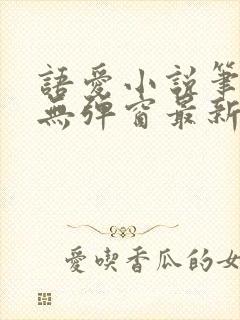 語愛小說筆
無彈窗最新
愛喫香瓜的女